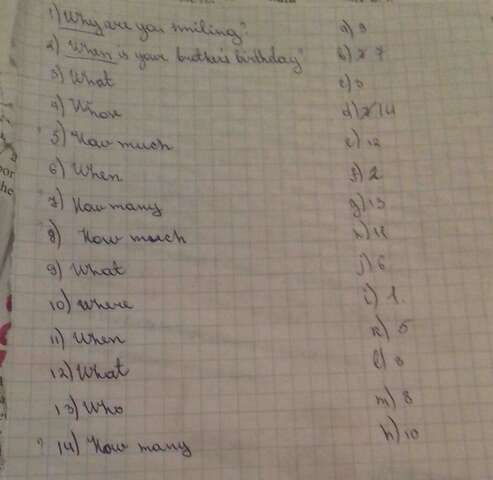 1) Why are you smiling?
2) When is your brother's birthday?
3) What
4)
5) How much
6) When
7) How many
8) How much
9) What
10) Where
11) When
12) What
13) Who
14) How many
a) 9
b) 7
c)
d) 14
e) 12
f) 2
g) 13
h)
j) 6
i) 1.
k) 5
l) 3
m) 8
n) 10